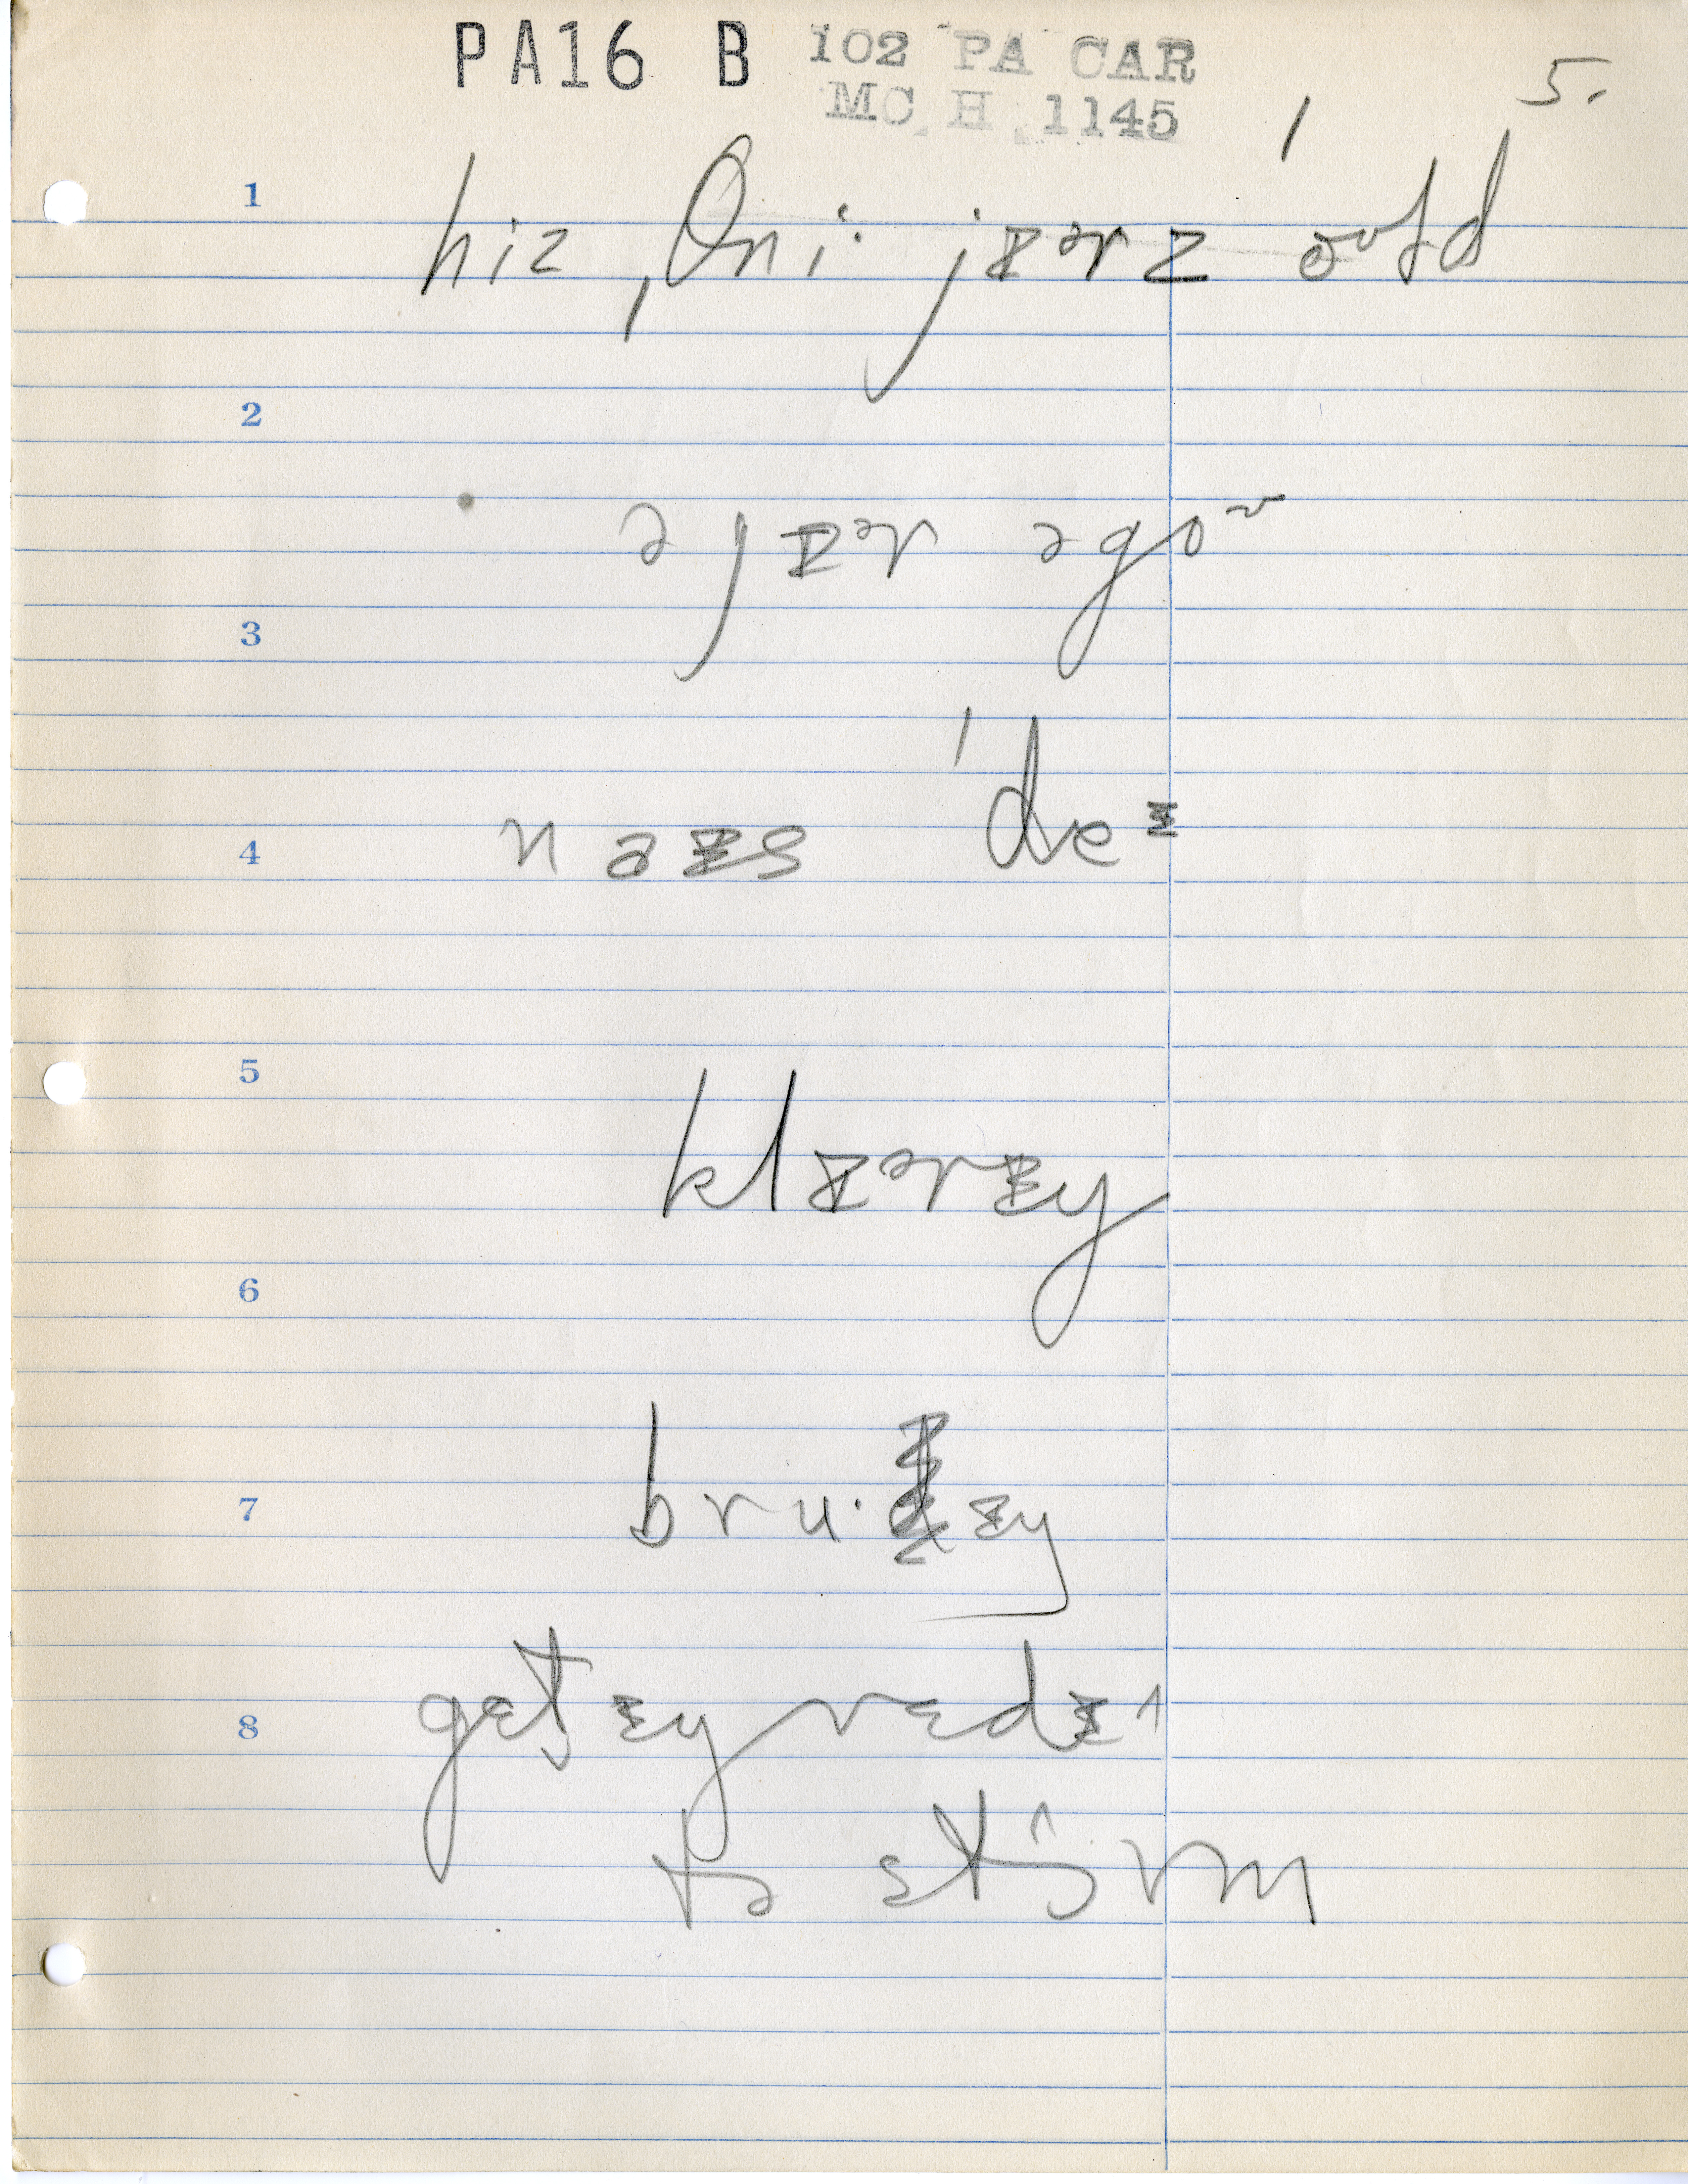 PA16 B 102 PA CAR 5.
MC H 1145
1 hiz ˌθri· jɪᵊrz ˈoᵛɫd
2
ə jɪᵊr əgoᵛ
3
4 naɪs ˈdeᶦ
5
klɪᵊrɪŋ
6
7 bru·dɪŋ
8 gɛt̬ɪŋ rɛdɪ˄
tə stɔ˄rm